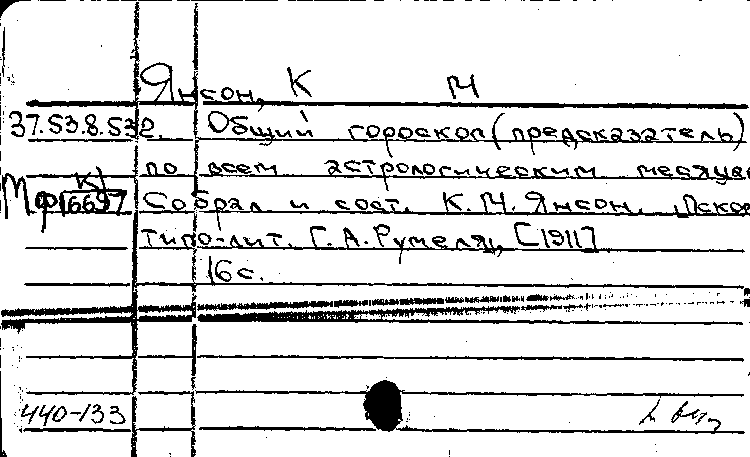 Янсон, К М
37.53.8.532. Общий гороскоп (предсказатель)
по всем астрологическим месяцам
К)
Мф16697 Собрал и сост. К.М. Янсон. Псков
типо-лит. Г.А. Румеля, [1911]
16 с.
440-133